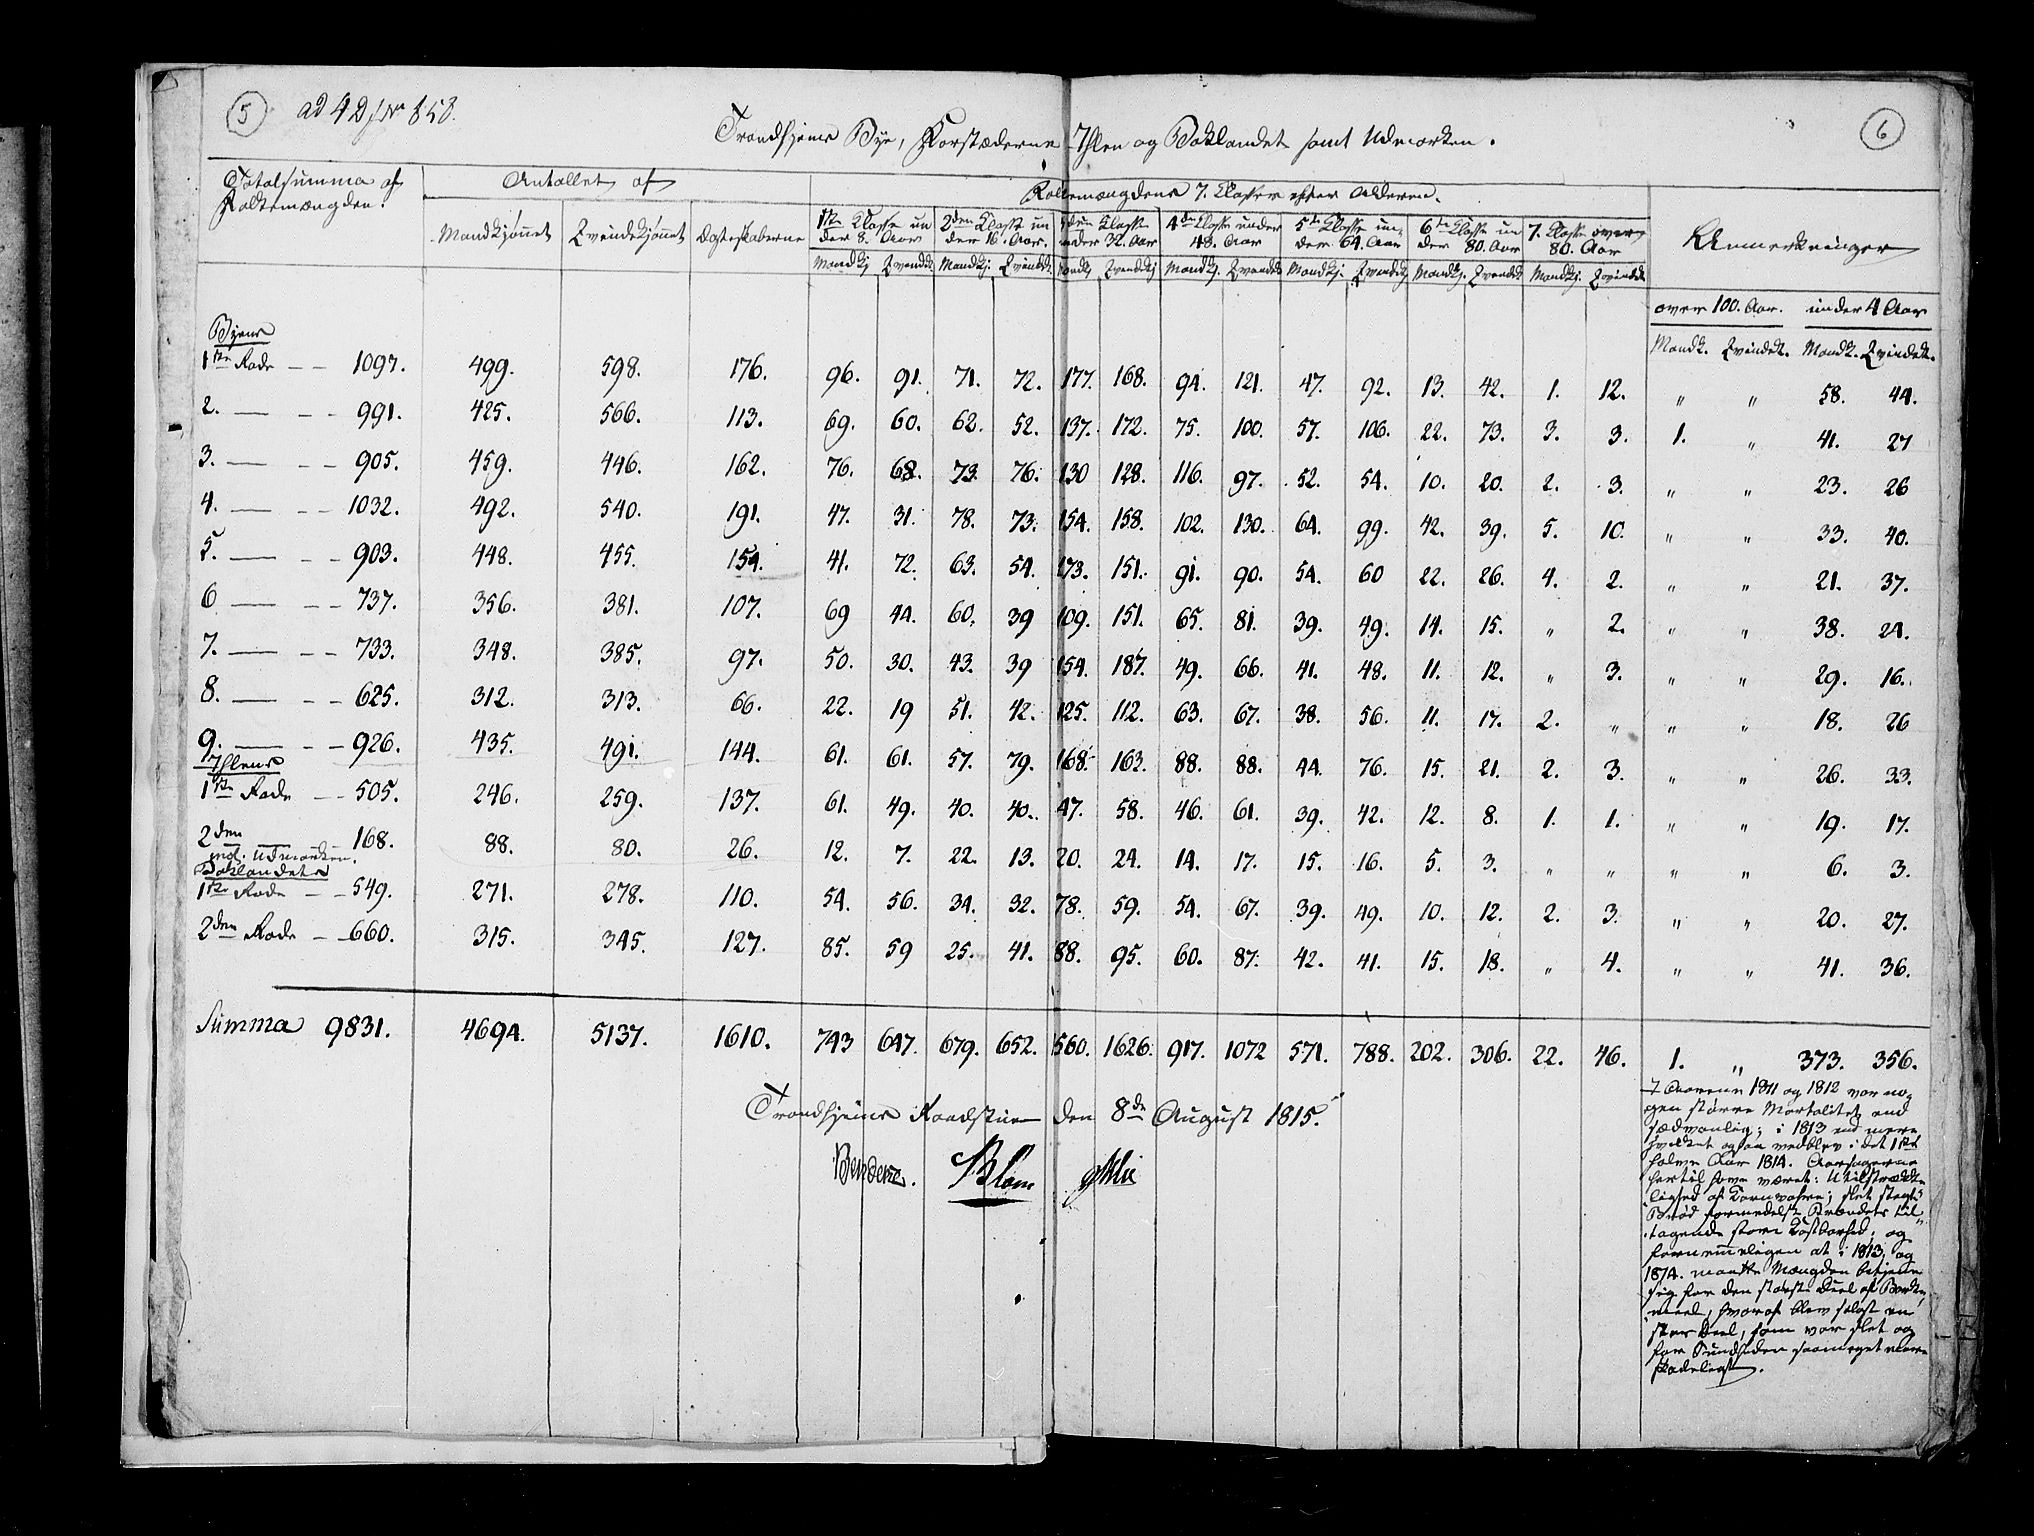 5 ad 4 D j No 858. 6
Trondhjems Bye, Forstæderne Ihlen og Baklandet samt Udmarken.
Totalsumma af Folkemængden. | Antallet af | Folkemængdens 7. Classer efter Alderen. | Anmerkninger
Mandkjønnet | Qvindekjønnet | Ægteskaberne | 1ste Classe under 8. Aar | 2den Classe under 16. Aar. | 3die Classe under 32. Aar | 4de Classe under 48. Aar | 5te Classe under 64. Aar | 6te Classe under 80. Aar | 7. Classe over 80. Aar
Mandkj | Qvindek | Mandkj. | Qvindek. | Mandkj | Qvindekj | Mandkj. | Qvindek | Mandkj. | Qvindekj | Mandkj. | Qvindek | Mandkj. | Qvindek | over 100. Aar. | under 4 Aar
Mandk. Qvindek. Mandk. Qvindek.
Byens
1ste Rode — — 1097. 499. 598. 176. 96. 91. 71. 72. 177. 168. 94. 121. 47. 92. 13. 42. 1. 12. " " 58. 44.
2. — — — 991. 425. 566. 113. 69. 60. 62. 52. 137. 172. 75. 100. 57. 106. 22. 73. 3. 3. 1. " 41. 27
3. — — — 905. 459. 446. 162. 76. 68. 73. 76. 130 128. 116. 97. 52. 54. 10. 20. 2. 3. " " 23. 26
4. — — — 1032. 492. 540. 191. 47. 31. 78. 73. 154. 158. 102. 130. 64. 99. 42. 39. 5. 10. " " 33. 40.
5. — — — 903. 448. 455. 154. 41. 72. 63. 54. 173. 151. 91. 90. 54. 60 22. 26. 4. 2. " " 21. 37.
6 — — — 737. 356. 381. 107. 69 44. 60. 39 109. 151. 65. 81. 39. 49. 14. 15. " 2. " " 38. 24.
7. — — — 733. 348. 385. 97. 50. 30. 43. 39 154. 187. 49. 66. 41. 48. 11. 12. " 3. " " 29. 16.
8. — — — 625. 312. 313. 66. 22. 19 51. 42. 125. 112. 63. 67. 38. 56. 11. 17. 2. " " " 18. 26
9. — — — 926. 435. 491. 144. 61. 61. 57. 79. 168. 163. 88. 88. 44. 76. 15. 21. 2. 3. " " 26. 33.
Ihlens
1ste Rode — — 505. 246. 259. 137. 61. 49. 40. 40. 47. 58. 46. 61. 39. 42. 12. 8. 1. 1. " " 19. 17.
2den — — 168. 88. 80. 26. 12. 7. 22. 13. 20. 24. 14. 17. 15. 16. 5. 3. " " " " 6. 3.
incl. Udmarken.
Baklandets
1ste Rode — — 549. 271. 278. 110. 54. 56. 34. 32. 78. 59. 54. 67. 39. 49. 10. 12. 2. 3. " " 20. 27.
2den Rode — — 660. 315. 345. 127. 85. 59 25. 41. 88. 95. 60. 87. 42. 41. 15. 18. " 4. " " 41. 36.
Summa 9831. 4694. 5137. 1610. 743 647. 679. 652. 1560. 1626. 917. 1072 571. 788. 202. 306. 22. 46. 1. " 373. 356.
Trondhjems Raadstue den 8de August 1815.
Blom
I Aarene 1811 og 1812 var no-
gen større Mortalitet end
sædvanlig; i 1813 end mere
hvilket ogsaa vedblev i det 1ste
halve Aar 1814. Aarsagerne
hertil have været: Utilstrække-
lighed af Kornvahre; slet stegt
Brød formedelst Brændets til-
tagende store Kostbarhed; og
fornemmeligen at i 1813 og
1814. maatte Mængden betjene
sig for den største Deel af Bark-
meel, hvoraf blev solgt en
stor Deel, som var slet og
for Sundheden saameget mere
skadeligt.